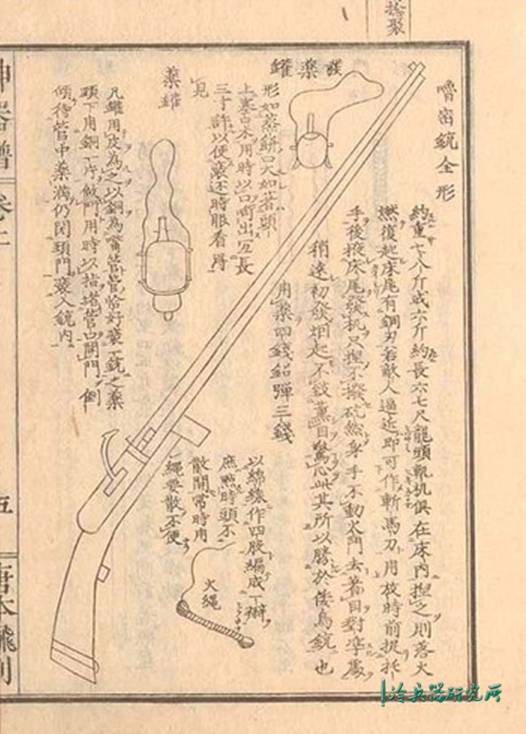 嚕密銃全形
約重七八斤或六斤約長六七尺龍頭軌机俱在床內捏之則落火
燃復起床尾有鋼刃若敵人逼近即可作斬馬刀用放時前捉托
手後掖床尾發机只捏不撥砣然身手不動火門去著目對準處
稍遠初發烟起不致薰目驚心此其所以勝於倭鳥銃也
用藥四錢鉛彈三錢
發藥罐
形如蒸餅口大如荳頭
上塞口用時以口啣出長
三寸許以便裝时眼看得
見
藥罐
凡罐用皮為之以銅為嘴管管恰好裝一銃之藥
頭下用銅一片做門用時以指堵管口開門倒
傾待管中藥滿仍閉頭門裝入銃內
以綿線作四股編成一辮
庶燃時頭不
散開常時用
繩要散不便
火繩
神器譜 卷二
五
唐本飜刻
冷兵器研究所